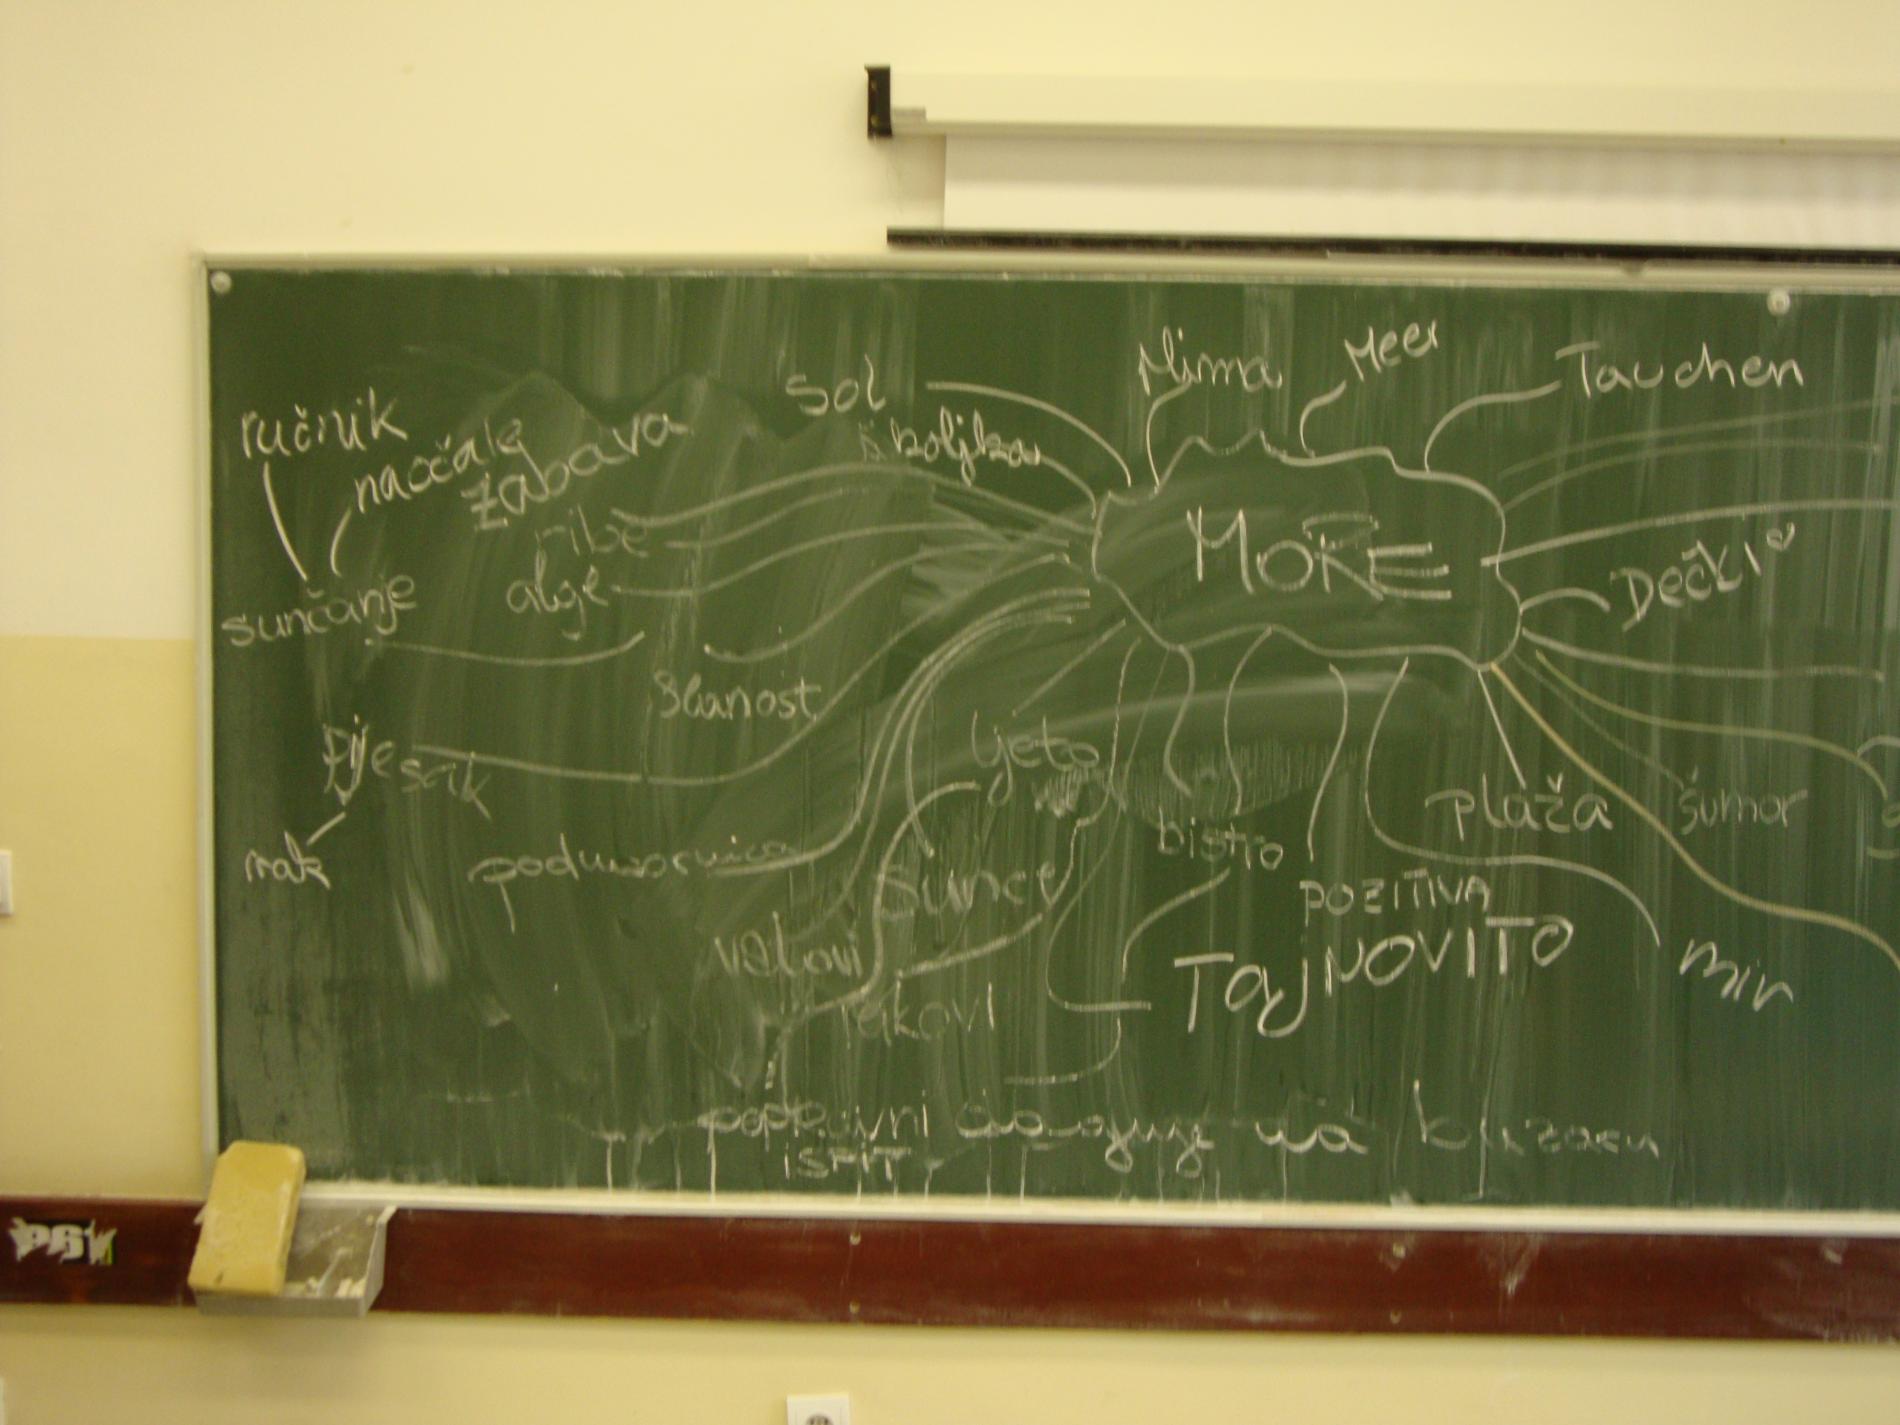 Mirna
Meer
Tauchen
sol
školjka
ručnik
naočale
zabava
ribe
alge
MORE
Dečki
sunčanje
slanost
pijesak
ljeto
rak
podmornica
sunce
bistro
plaža
šumor
POZITIVA
valovi
TajNOVITO
mir
popravni
ISPIT
na